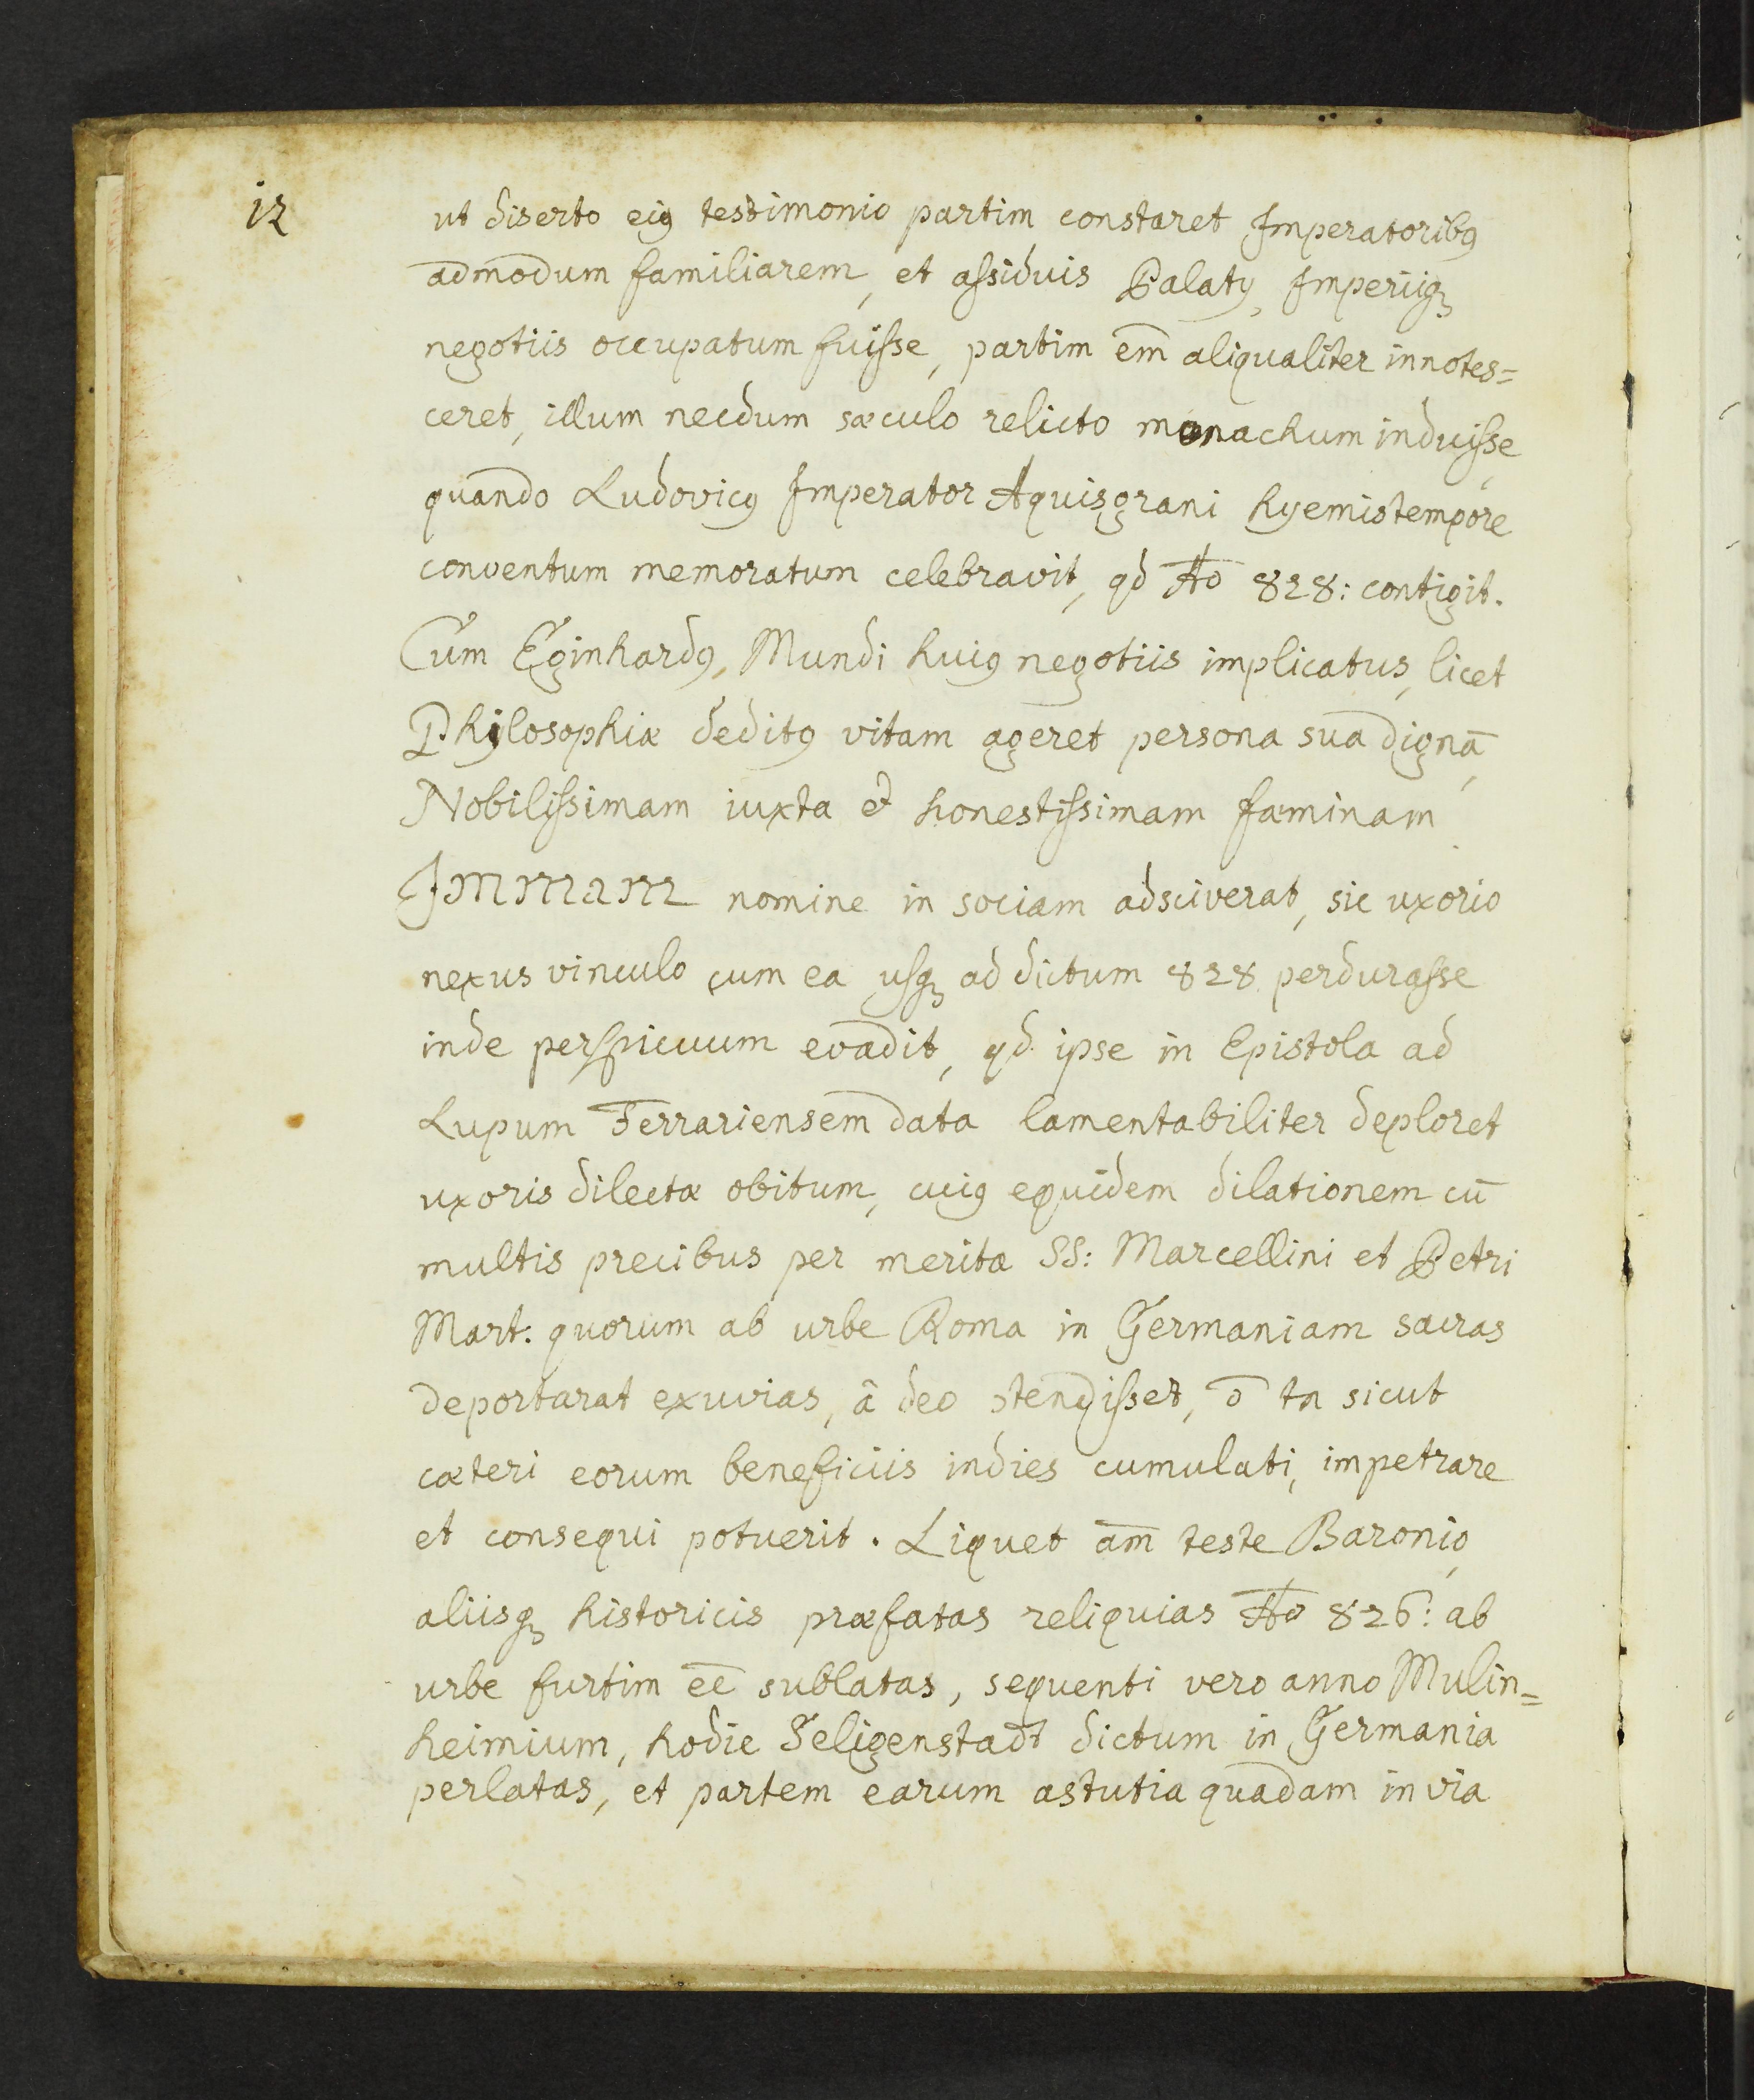 12
ut diserto eiꝯ testimonio partim constaret Imperatoribꝯ
admodum familiarem, et aſsiduis Palatÿ, Imperiiqꝫ
negotiis occupatum fuiſse, partim em̄ aliqualiter innotes=
ceret, illum necdum sæculo relicto monachum induiſse,
quando Ludovicꝯ Imperator Aquisgrani hyemis tempore
conventum memoratum celebravit, qd Aō 828: contigit.
Cum Eginhardꝯ, Mundi huiꝯ negotiis implicatus, licet
Philosophiæ deditꝯ vitam ageret persona sua dignā,
Nobiliſsimam iuxta et honestiſsimam fæminam
Immam nomine in sociam adsciverat, sic uxorio
nexus vinculo cum ea uſqꝫ ad dictum 828 perduraſse
inde perſpicuum evadit, qd ipse in Epistola ad
Lupum Ferrariensem data lamentabiliter deploret
uxoris dilectæ obitum, cuiꝯ equidem dilationem cū
multis precibus per merita SS: Marcellini et Petri
Mart: quorum ab urbe Roma in Germaniam sacras
deportarat exuvias, â deo ↄtendiſset, ō tn sicut
cæteri eorum beneficiis indies cumulati, impetrare
et consequi potuerit. Liquet am̄ teste Baronio,
aliisqꝫ historicis præfatas reliquias Aō 826: ab
urbe furtim eē sublatas, sequenti vero anno Mulin=
heimium, hodie Seligenstadt dictum in Germania
perlatas, et partem earum astutia quadam in via